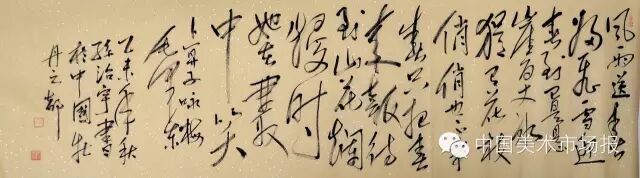 风雨送春
归飞雪迎
春到已是悬
崖百丈冰
犹有花枝
俏俏也不争
春只把春
来报待
到山花烂
漫时
她在丛
中笑
卜算子咏梅
毛泽东
乙未年中秋
孙治宇书
於中國牡
丹之都
中国美术市场报